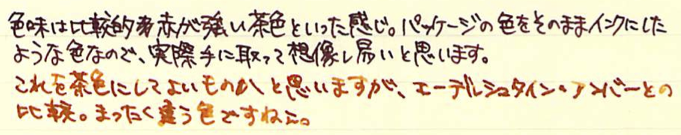 色味は比較的赤が強い茶色といった感じ。パッケージの色をそのままインクにした
ような色なので、実際手に取って想像し易いと思います。
これを茶色にしてよいものか、と思いますが、エーデルシュタイン・アンバーとの
比較。まったく違う色ですねニ。